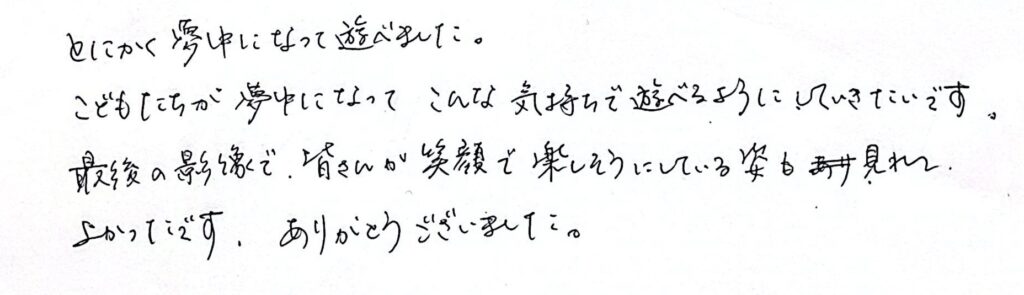 とにかく夢中になって遊べました。
こどもたちが夢中になって こんな気持ちで遊べるようにしていきたいです。
最後の影像で、皆さんが笑顔で楽しそうにしている姿も見れて、
よかったです。ありがとうございました。